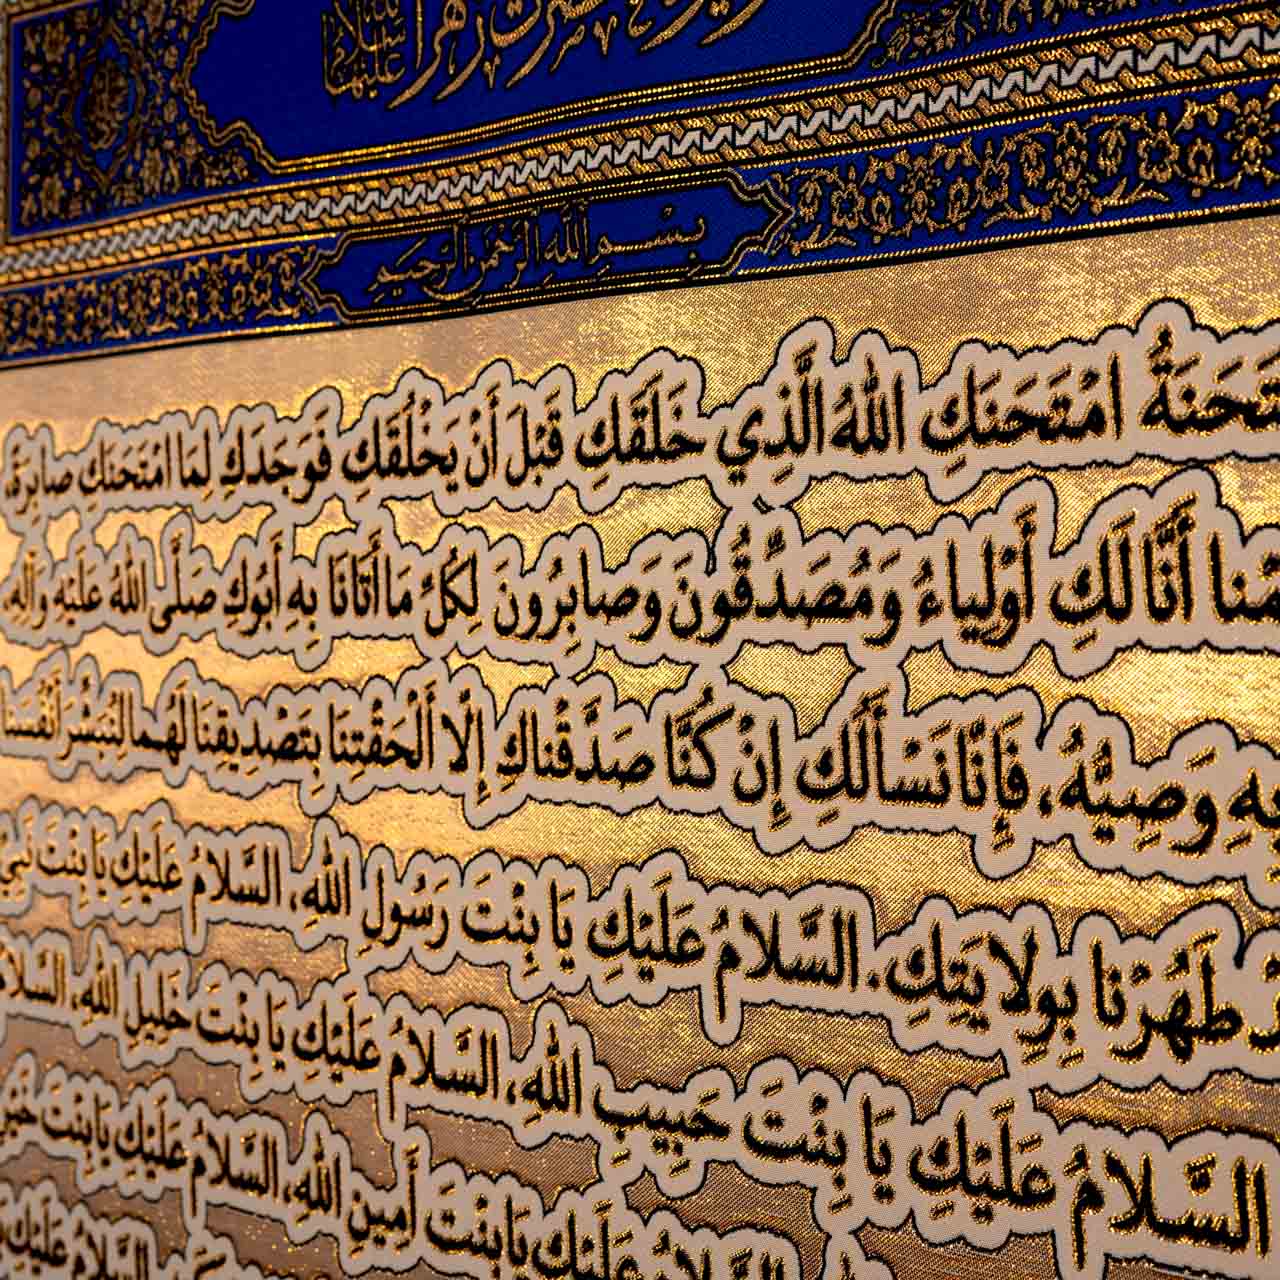 حضرت زهرا سلام الله علیها
بِسْمِ اللهِ الرَّحْمنِ الرَّحیمِ
امْتَحَنَكِ اللهُ الَّذِي خَلَقَكِ قَبْلَ أَنْ يَخْلُقَكِ فَوَجَدَكِ لِمَا امْتَحَنَكِ صابِرَةً،
أَنَّا لَكِ أَوْلِياءُ وَمُصَدِّقُونَ وَصابِرُونَ لِكُلِّ مَا أَتَانَا بِهِ أَبُوكِ صَلَّى اللهُ عَلَيْهِ وَآلِهِ،
بِهِ وَصِيُّهُ، فَإِنَّا نَسْأَلُكِ إِنْ كُنَّا صَدَّقْناكِ إِلّا أَلْحَقْتِنَا بِتَصْدِيقِنَا لَهُما لِنُبَشِّرَ أَنْفُسَنا
طَهُرْنا بِوِلايَتِكِ. السَّلامُ عَلَيْكِ يَا بِنْتَ رَسُولِ اللهِ، السَّلامُ عَلَيْكِ يَا بِنْتَ نَبِيِّ
السَّلامُ عَلَيْكِ يَا بِنْتَ حَبِيبِ اللهِ، السَّلامُ عَلَيْكِ يَا بِنْتَ خَلِيلِ اللهِ، السَّلامُ
السَّلامُ عَلَيْكِ يَا بِنْتَ أَمِينِ اللهِ، السَّلامُ عَلَيْكِ يَا بِنْتَ خَيْرِ
السَّلامُ عَلَيْكِ